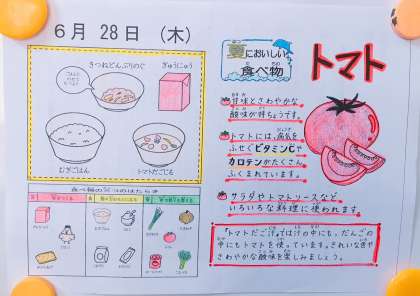 6月 28日 (木)
きつねどんぶりのぐ
ぎゅうにゅう
むぎごはん
トマトだごじる
食べ物の3つのはたらき
夏においしい
食べ物
トマト
甘味とさわやかな
酸味が特ちょうです。
トマトには、病気を
ふせぐビタミンCや
カロテンがたくさん
ふくまれています。
サラダやトマトソースなど、
いろいろな料理に使われます。
「トマトだご汁」では汁の中にも、だんごの
中にもトマトを使っています。きれいな色や
さわやかな酸味を楽しみましょう。